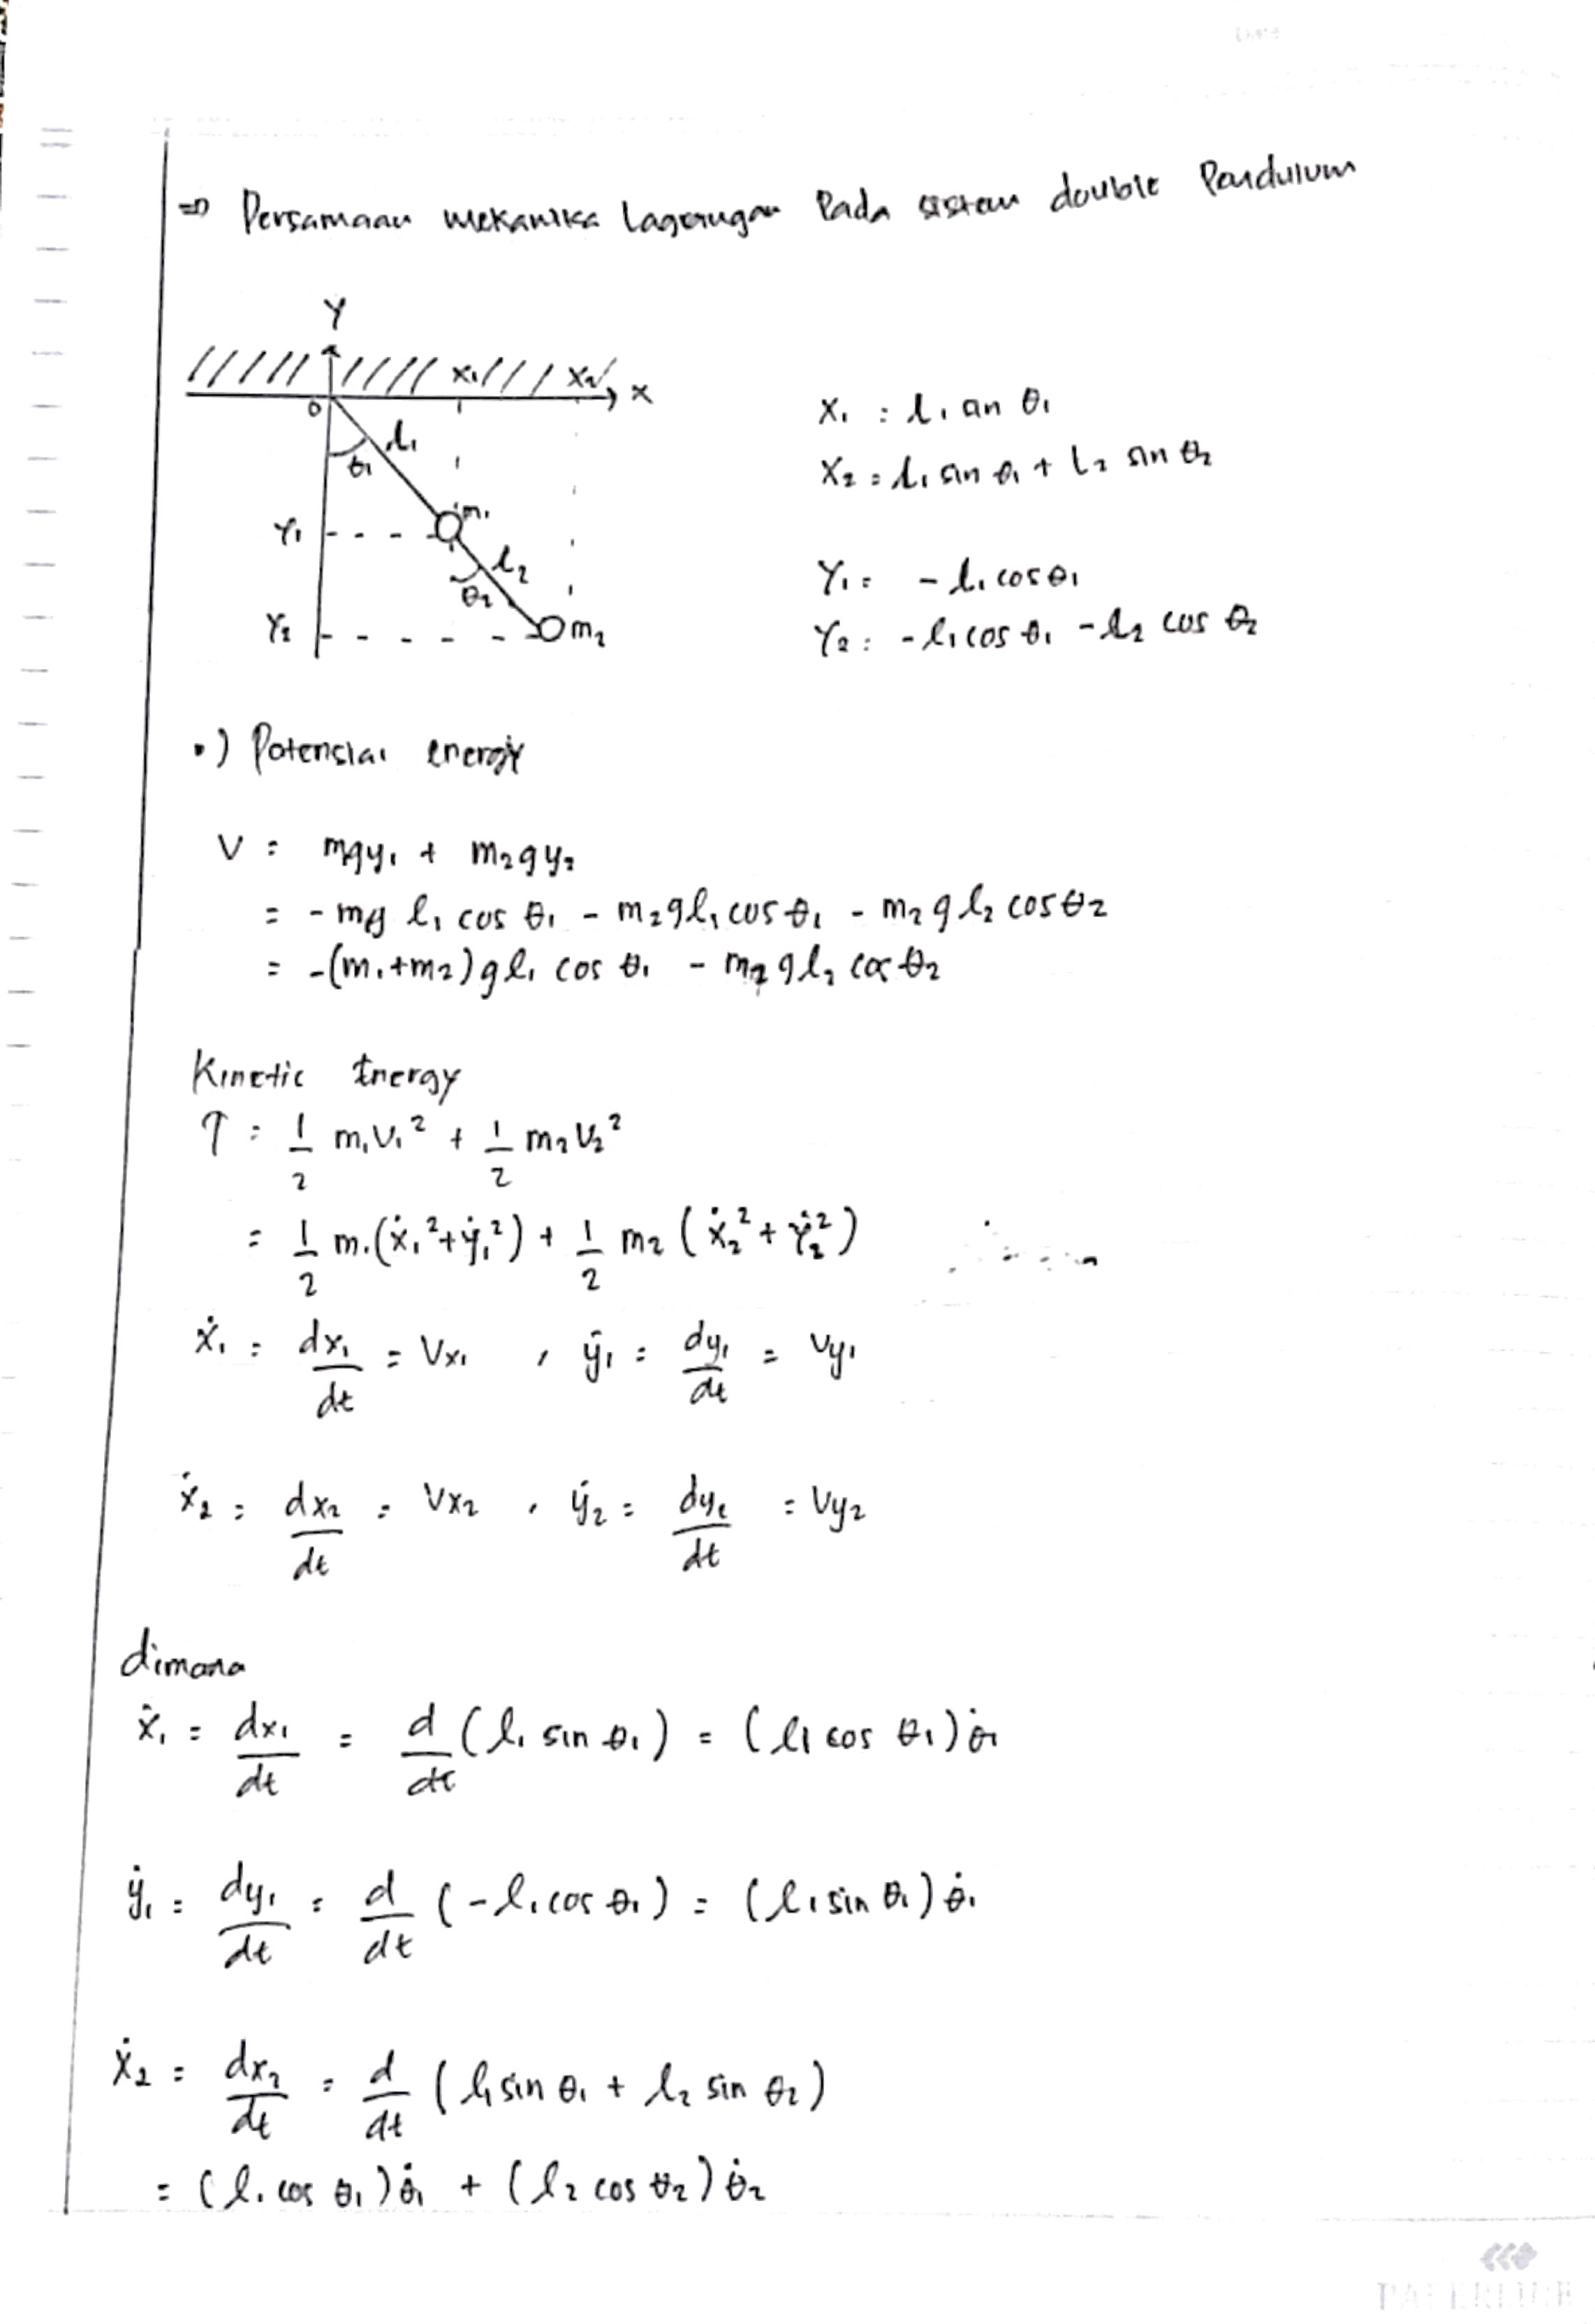 Date
⇒ Persamaan mekanika Lagerugan Pada sistem double Pendulum
Y
x₁ x₂ x
0
l₁
θ₁
Y₁ m₁
l₂
θ₂
Y₂ m₂
X₁ : l₁ sin θ₁
X₂ = l₁ sin θ₁ + l₂ sin θ₂
Y₁ = - l₁ cos θ₁
Y₂ : - l₁ cos θ₁ - l₂ cos θ₂
•) Potensial energy
V = mgy₁ + m₂gy₂
= - mg l₁ cos θ₁ - m₂gl₁ cos θ₁ - m₂ g l₂ cos θ₂
= -(m₁+m₂)gl₁ cos θ₁ - m₂gl₂ cos θ₂
Kinetic Energy
T = 1/2 m₁V₁² + 1/2 m₂V₂²
= 1/2 m₁(ẋ₁²+ẏ₁²) + 1/2 m₂ (ẋ₂² + Ẏ₂²)
ẋ₁ = dx₁/dt = Vx₁ , ẏ₁ = dy₁/dt = Vy₁
ẋ₂ = dx₂/dt = Vx₂ , ẏ₂ = dy₂/dt = Vy₂
dimana
ẋ₁ = dx₁/dt = d/dt (l₁ sin θ₁) = (l₁ cos θ₁) θ̇₁
ẏ₁ = dy₁/dt = d/dt (-l₁ cos θ₁) = (l₁ sin θ₁) θ̇₁
ẋ₂ = dx₂/dt = d/dt (l₁ sin θ₁ + l₂ sin θ₂)
= (l₁ cos θ₁) θ̇₁ + (l₂ cos θ₂) θ̇₂
PAPERLINE